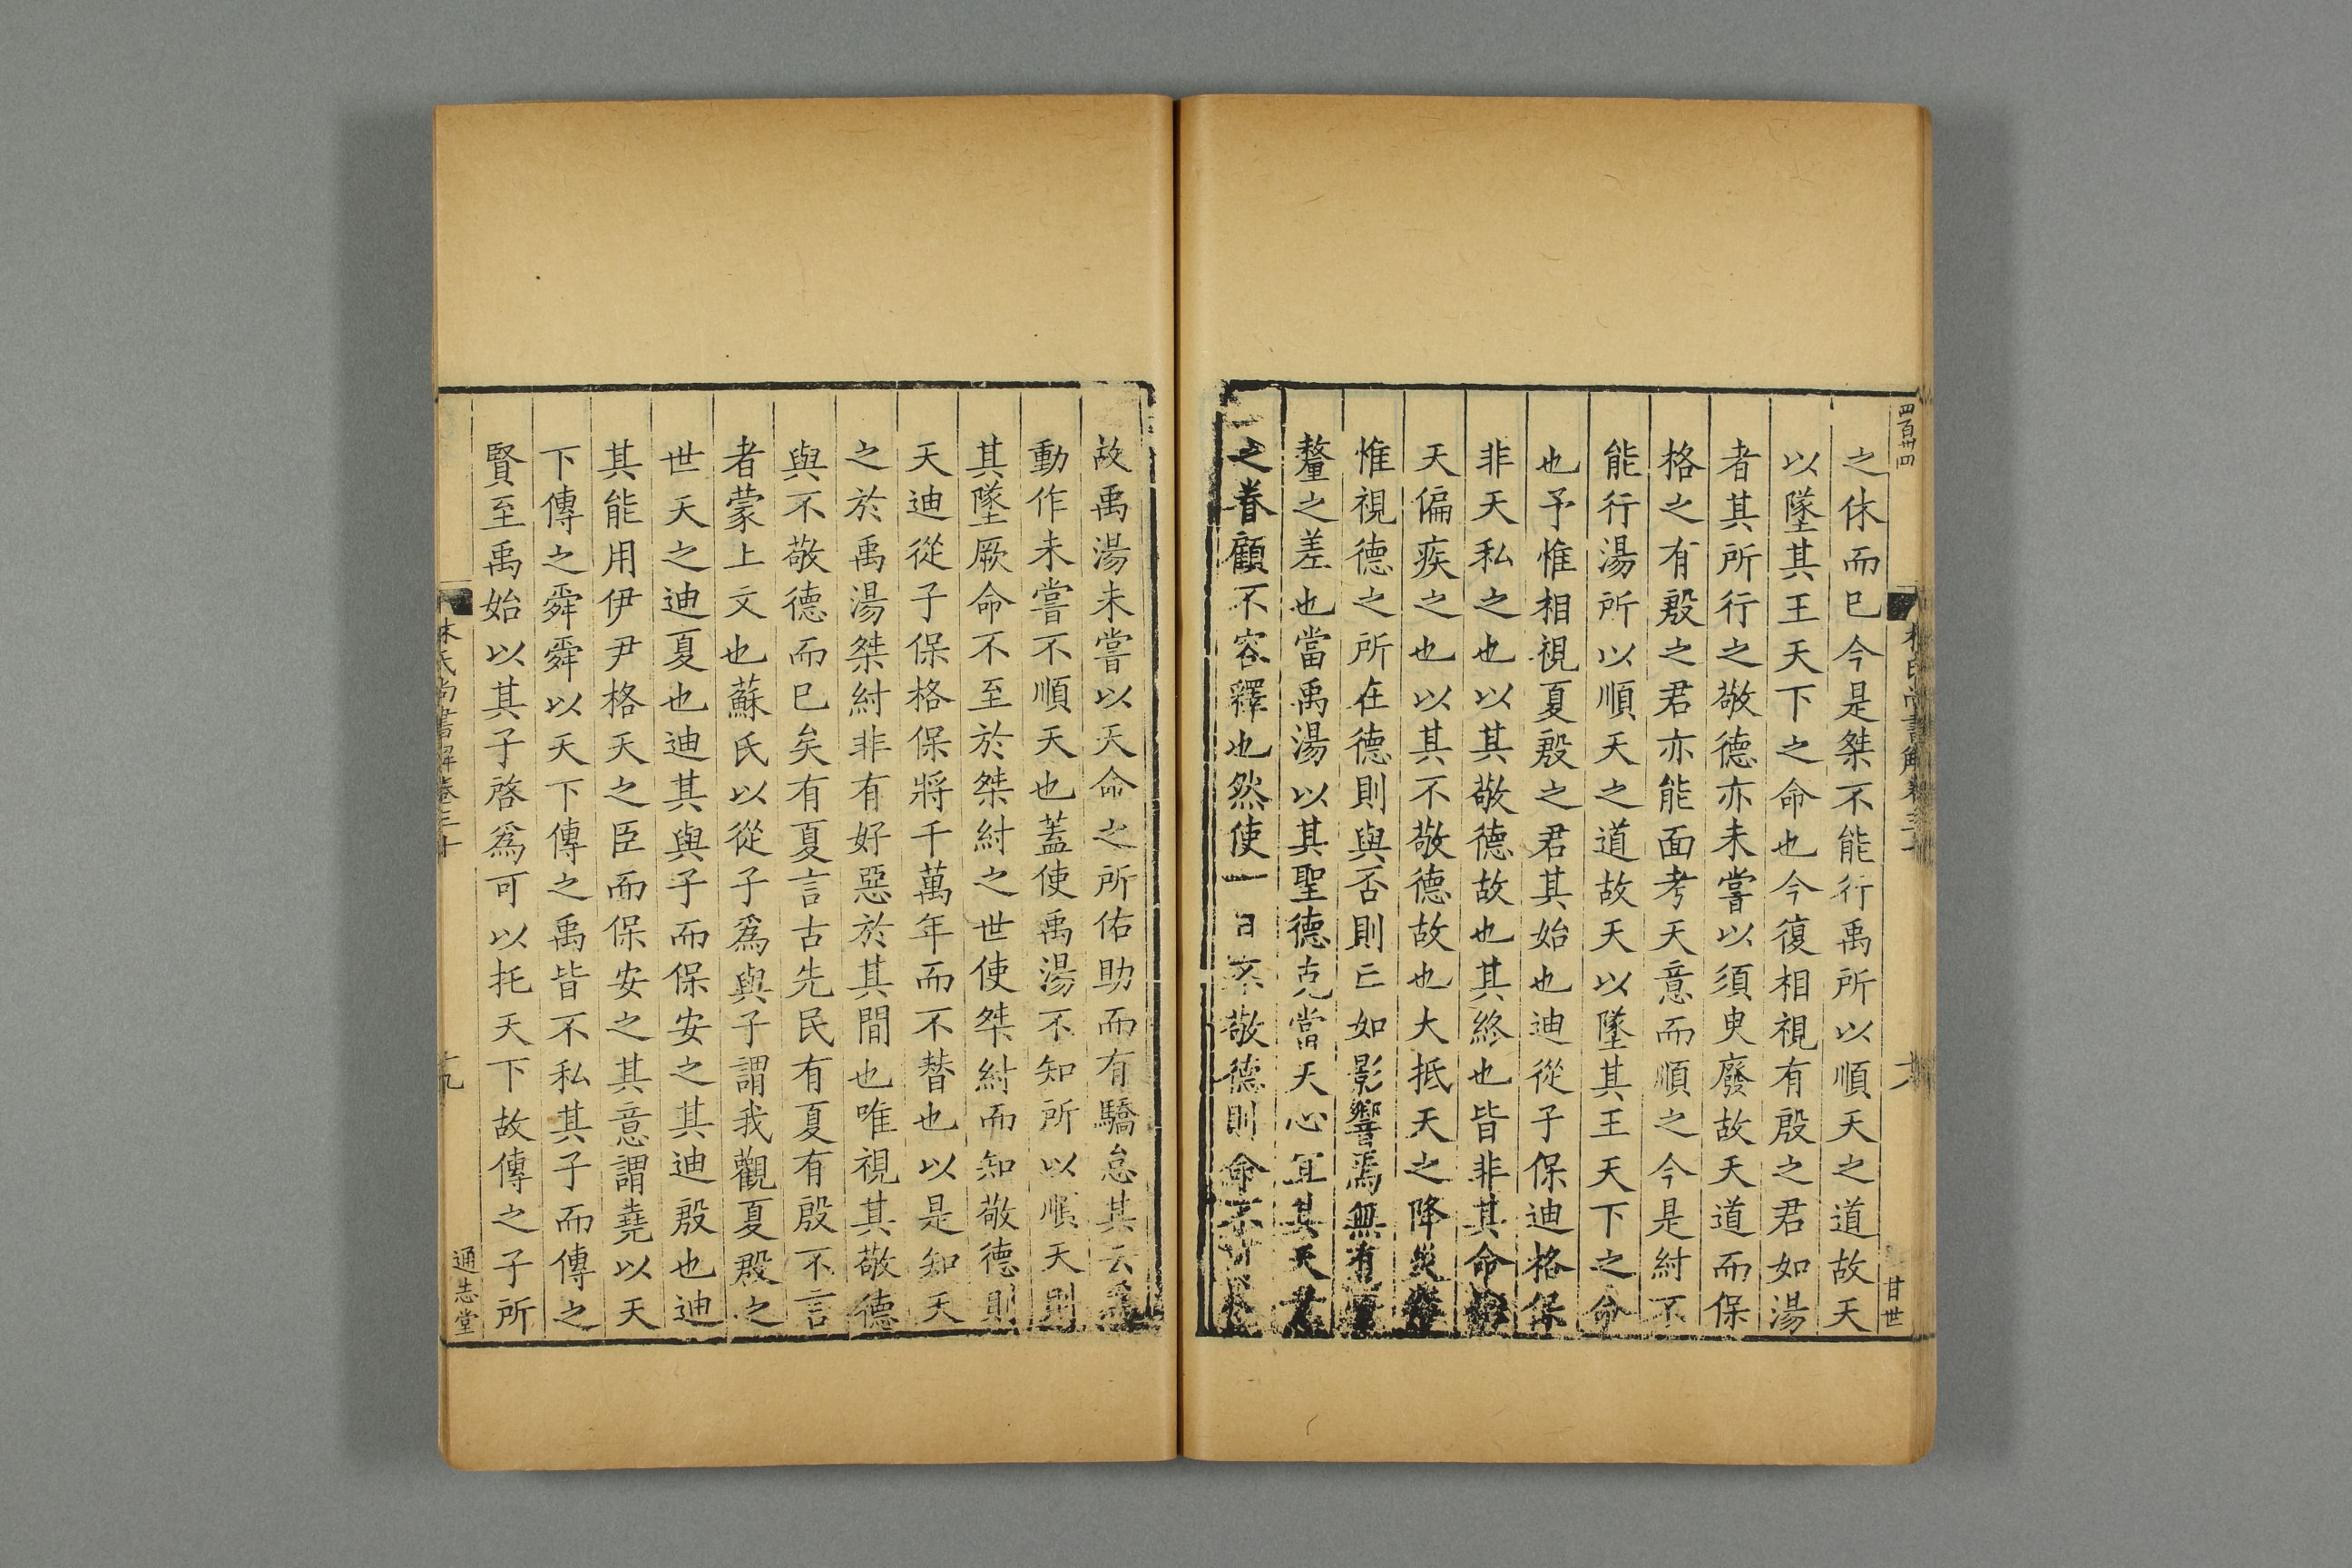 四百卅四
之休而已今是桀不能行禹所以順天之道故天
以墜其王天下之命也今復相視有殷之君如湯
者其所行之敬德亦未嘗以須臾廢故天道而保
格之有殷之君亦能面考天意而順之今是紂不
能行湯所以順天之道故天以墜其王天下之命
也予惟相視夏殷之君其始也迪從子保迪格保
非天私之也以其敬德故也其終也皆非其命
天偏疾之也以其不敬德故也大抵天之降災
惟視德之所在德則與否則亡如影響焉無有
釐之差也當禹湯以其聖德克當天心宜其天
之眷顧不容釋也然使一日不敬德則命不
甘世
故禹湯未嘗以天命之所佑助而有驕怠其云爲
動作未嘗不順天也蓋使禹湯不知所以順天則
其墜厥命不至於桀紂之世使桀紂而知敬德則
天迪從子保格保將千萬年而不替也以是知天
之於禹湯桀紂非有好惡於其間也唯視其敬德
與不敬德而已矣有夏言古先民有夏有殷不言
者蒙上文也蘇氏以從子爲與子謂我觀夏殷之
世天之迪夏也迪其與子而保安之其迪殷也迪
其能用伊尹格天之臣而保安之其意謂堯以天
下傳之舜舜以天下傳之禹皆不私其子而傳之
賢至禹始以其子啓爲可以托天下故傳之子所
林氏尚書解卷三十
十九
通志堂